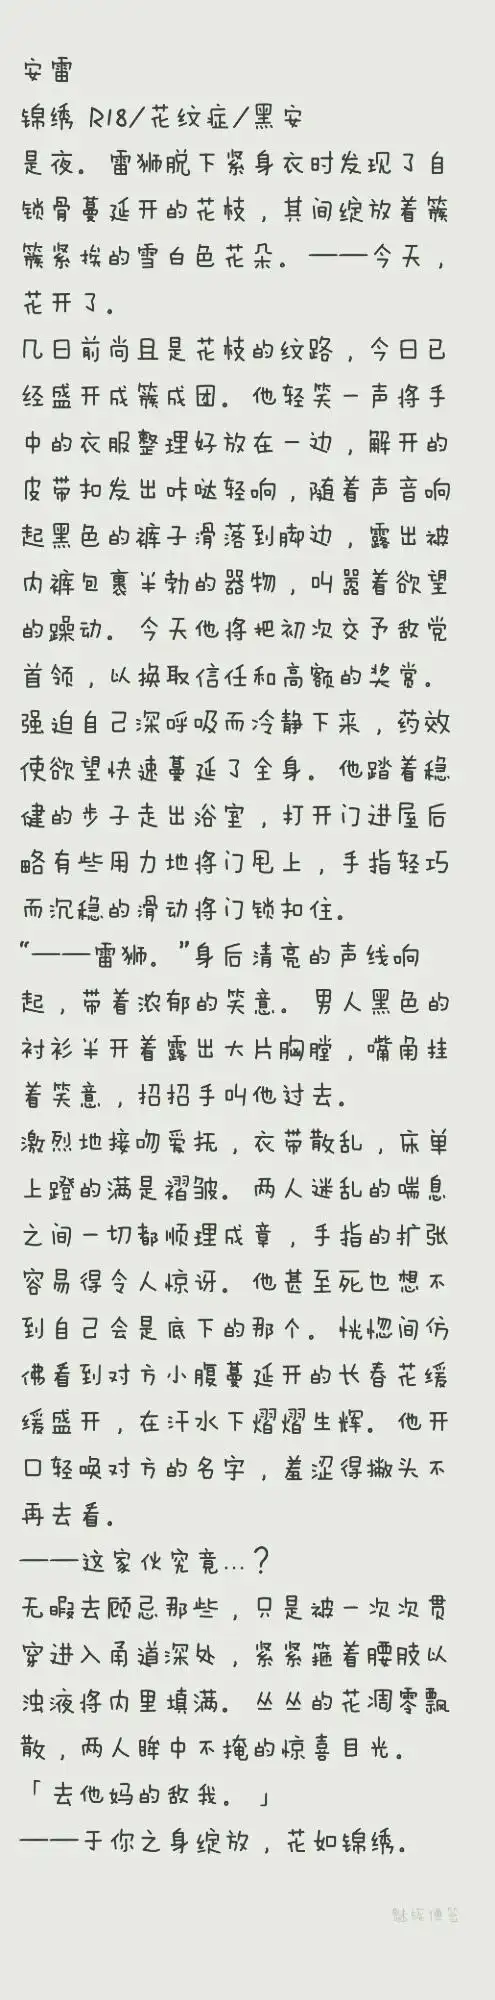 安雷
锦绣 R18/花纹症/黑安
是夜。雷狮脱下紧身衣时发现了自
锁骨蔓延开的花枝，其间绽放着簇
簇紧挨的雪白色花朵。——今天，
花开了。
几日前尚且是花枝的纹路，今日已
经盛开成簇成团。他轻笑一声将手
中的衣服整理好放在一边，解开的
皮带扣发出咔哒轻响，随着声音响
起黑色的裤子滑落到脚边，露出被
内裤包裹半勃的器物，叫嚣着欲望
的躁动。今天他将把初次交予敌党
首领，以换取信任和高额的奖赏。
强迫自己深呼吸而冷静下来，药效
使欲望快速蔓延了全身。他踏着稳
健的步子走出浴室，打开门进屋后
略有些用力地将门甩上，手指轻巧
而沉稳的滑动将门锁扣住。
“——雷狮。”身后清亮的声线响
起，带着浓郁的笑意。男人黑色的
衬衫半开着露出大片胸膛，嘴角挂
着笑意，招招手叫他过去。
激烈地接吻爱抚，衣带散乱，床单
上蹬的满是褶皱。两人迷乱的喘息
之间一切都顺理成章，手指的扩张
容易得令人惊讶。他甚至死也想不
到自己会是底下的那个。恍惚间仿
佛看到对方小腹蔓延开的长春花缓
缓盛开，在汗水下熠熠生辉。他开
口轻唤对方的名字，羞涩得撇头不
再去看。
——这家伙究竟…？
无暇去顾忌那些，只是被一次次贯
穿进入甬道深处，紧紧箍着腰肢以
浊液将内里填满。丛丛的花凋零飘
散，两人眸中不掩的惊喜目光。
「去他妈的敌我。」
——于你之身绽放，花如锦绣。
魅族便签